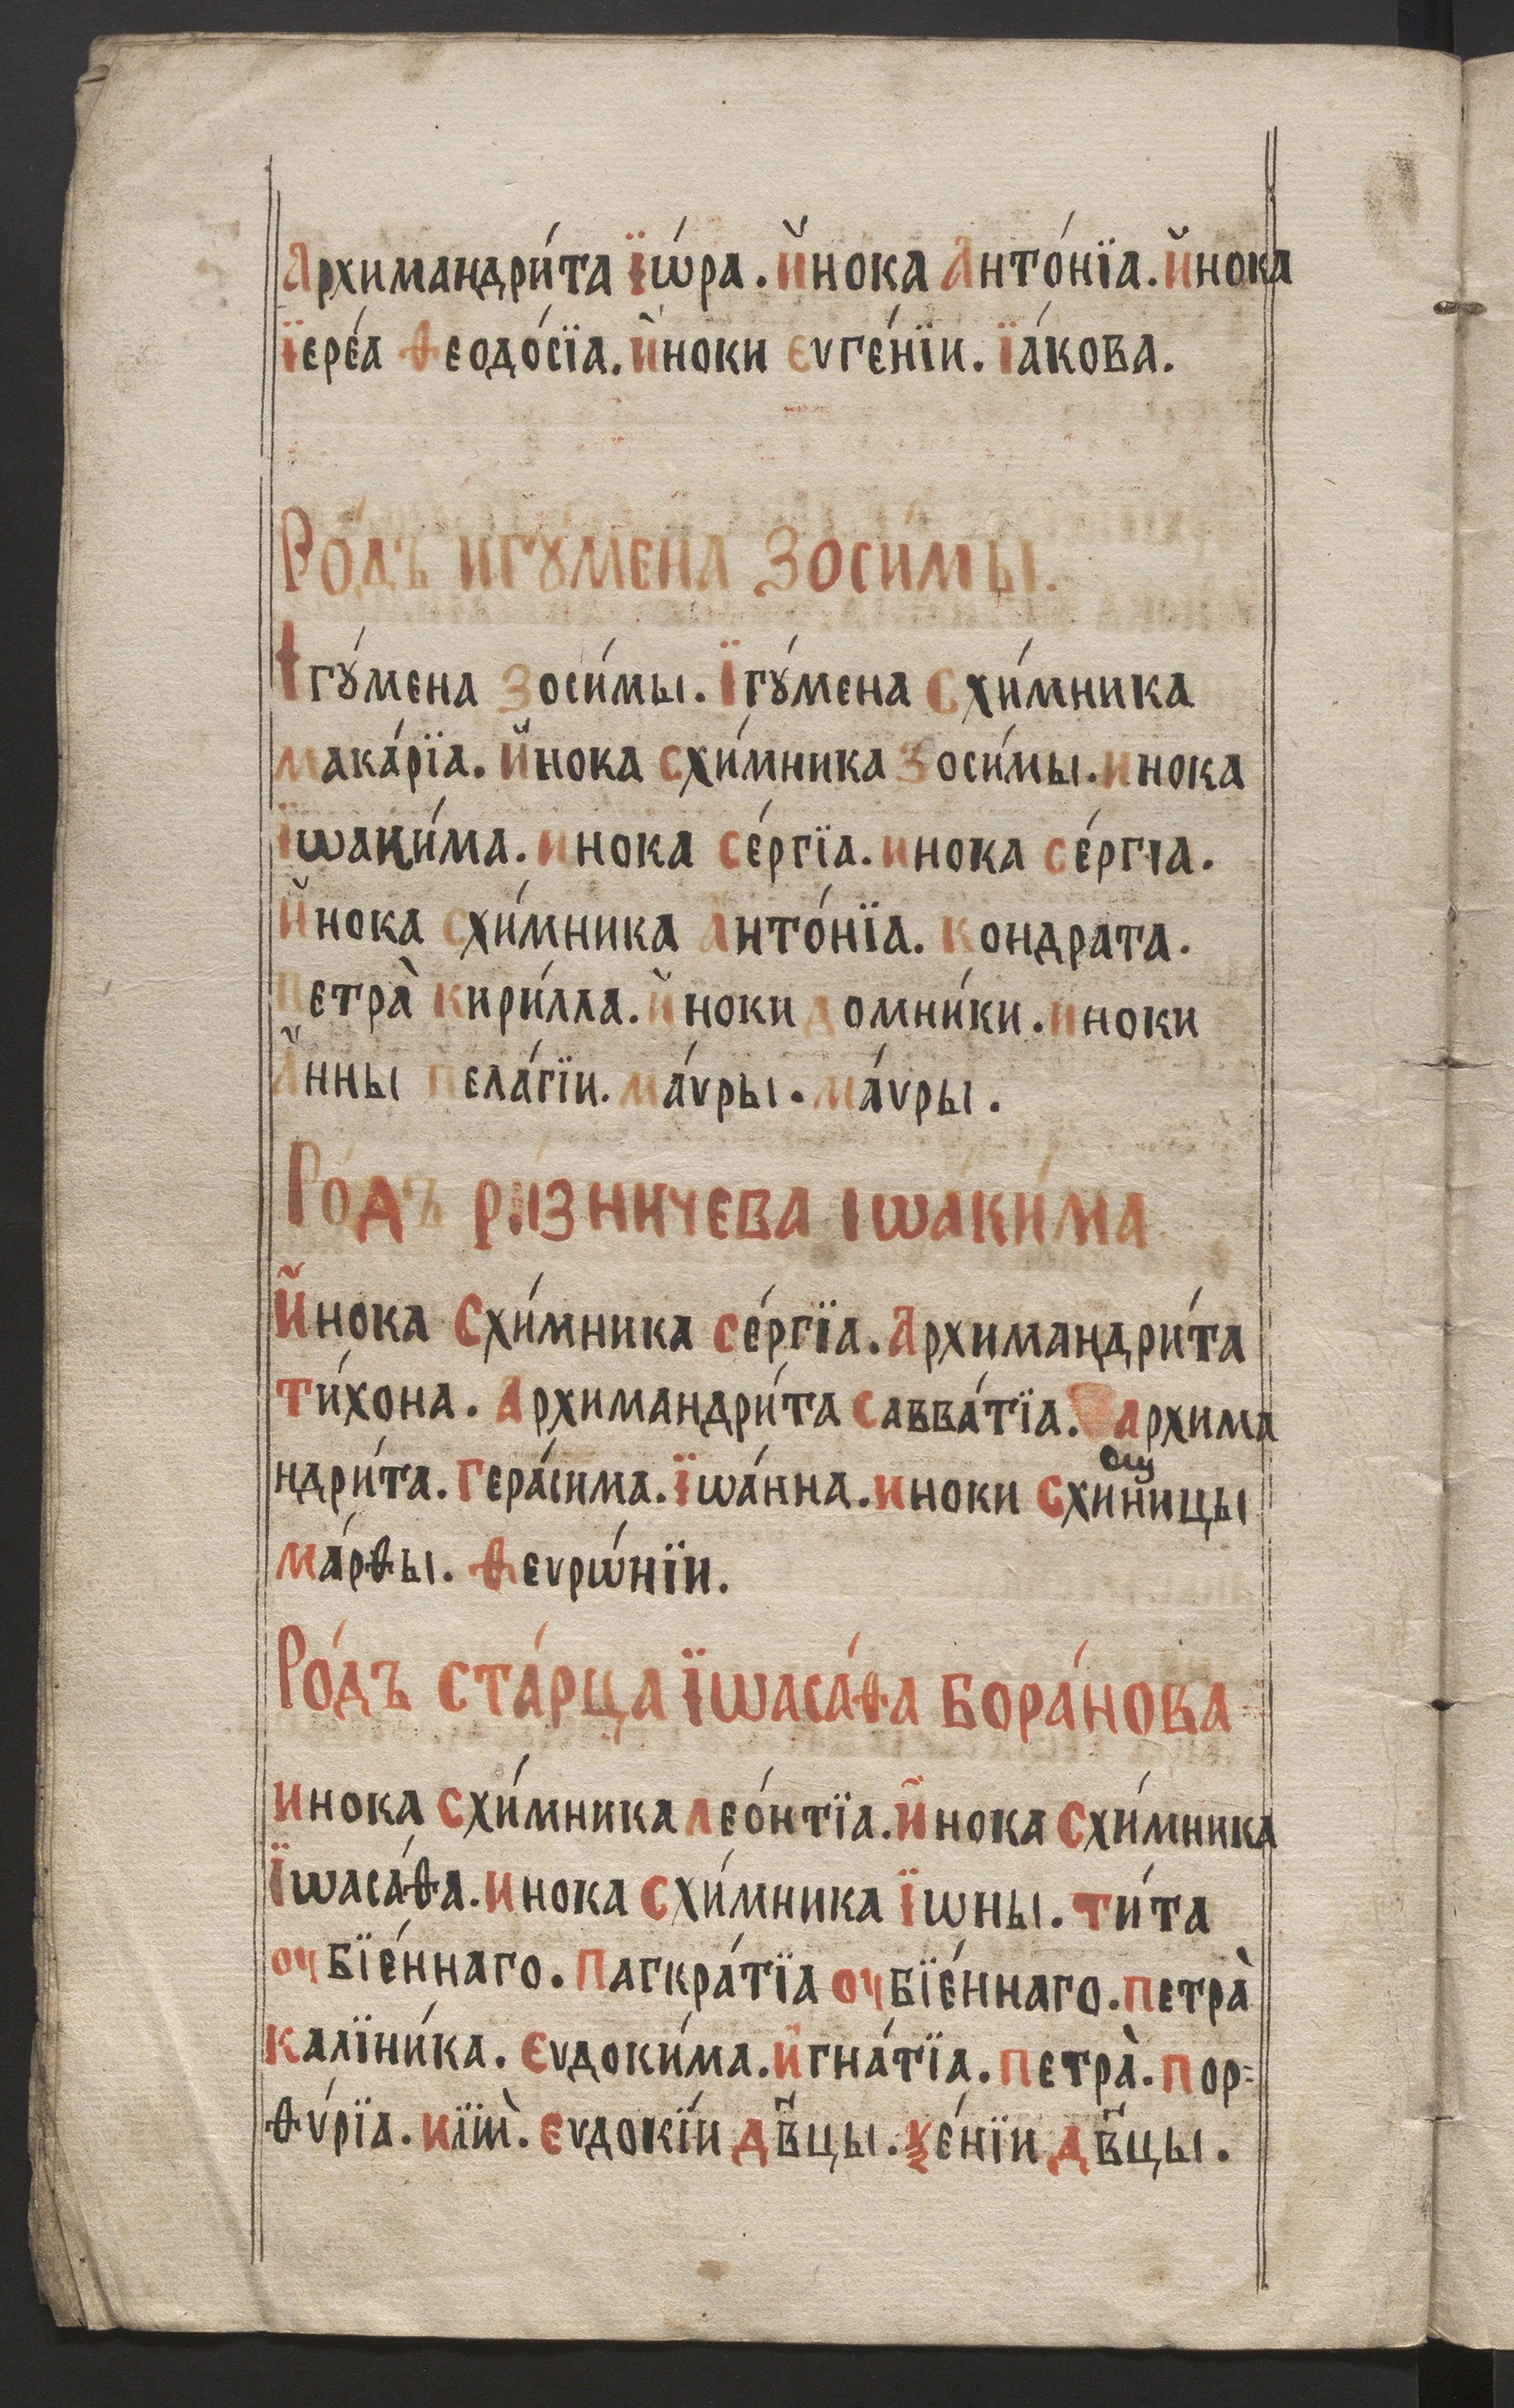 Архимандри́та Їѡ́ра. И҆́нока Анто́нїа. И҆́нока
Їере́а Ѳеодо́сїа. И҆́ноки Єѵге́нїи. Їа́кова.
Ро́дъ игꙋ́мена Зоси́мы.
Ігꙋ́мена Зоси́мы. Їгꙋ́мена Схи́мника
Мака́рїа. И҆́нока Схи́мника Зоси́мы. Инока
Їѡаки́ма. Инока Се́ргїа. Инока Се́ргїа.
И҆́нока Схи́мника Анто́нїа. Кондрата.
Петра̀ Кири́лла. И҆́ноки Домни́ки. Иноки
А҆́нны Пела́гїи. Ма́ѵры. Ма́ѵры.
Ро́дъ ри́зничева Іѡаки́ма
И҆́нока Схи́мника Се́ргїа. Архимандри́та
Ти́хона. Архимандри́та Савва́тїа. Архима
ндри́та. Гера́сима. Їѡа́нна. Иноки Схиницы
Ма́рѳы. Ѳеѵрѡ́нїи.
Ро́дъ ста́рца Їѡаса́ѳа Бора́нова
Инока Схи́мника Лео́нтїа. И҆́нока Схи́мника
Їѡаса́ѳа. Инока Схи́мника Їѡны. Ти́та
Оу҆бїе́ннаго. Пагкра́тїа Оу҆бїе́ннаго. Петра̀
Калїни́ка. Єѵдоки́ма. Игна́тїа. Петра̀. Пор=
ѳѵ́рїа. Илїи̑. Єѵдокі́и Дв҃цы. Ѯе́нїи Дв҃цы.